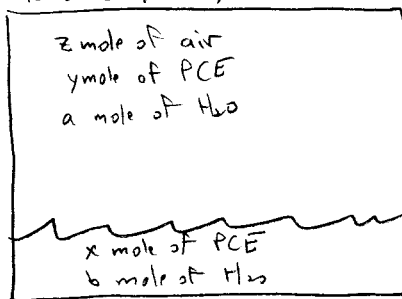 z mole of air
y mole of PCE
a mole of H₂O
x mole of PCE
b mole of H₂O